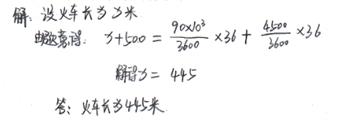 解：设火车长为y米
由题意得：y+500 = \frac{90×10³}{3600} ×36 + \frac{4500}{3600} ×36
解得y = 445
答：火车长为445米